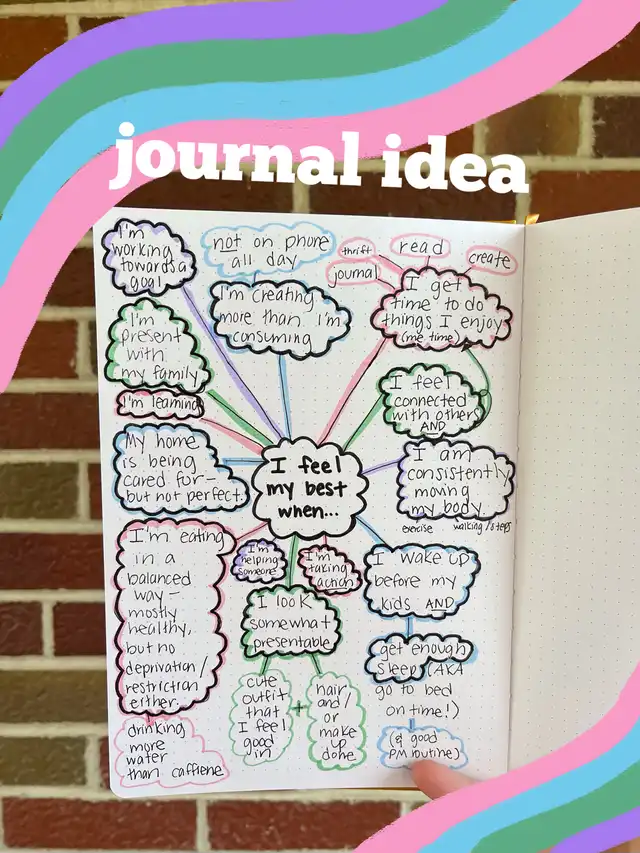 journal idea
I'm
working
towards a
goal
not on phone
all day
I'm creating
more than I'm
consuming
thrift
read
create
journal
I get
time to do
things I enjoy
(me time)
I'm
present
with
my family
I feel
connected
with others
AND
I'm learning
My home
is being
cared for-
but not perfect.
I feel
my best
when...
I am
consistently
moving
my body.
exercise
walking/steps
I'm eating
in a
balanced
way-
mostly
healthy,
but no
deprivation/
restriction
either.
drinking
more
water
than caffiene
I'm
helping
someone
I'm
taking
action
I look
somewhat
presentable
cute
outfit
that
I feel
good
in
+
hair
and/
or
make
up
done
I wake up
before my
kids AND
get enough
sleep (AKA
go to bed
on time!)
(& good
PM routine)